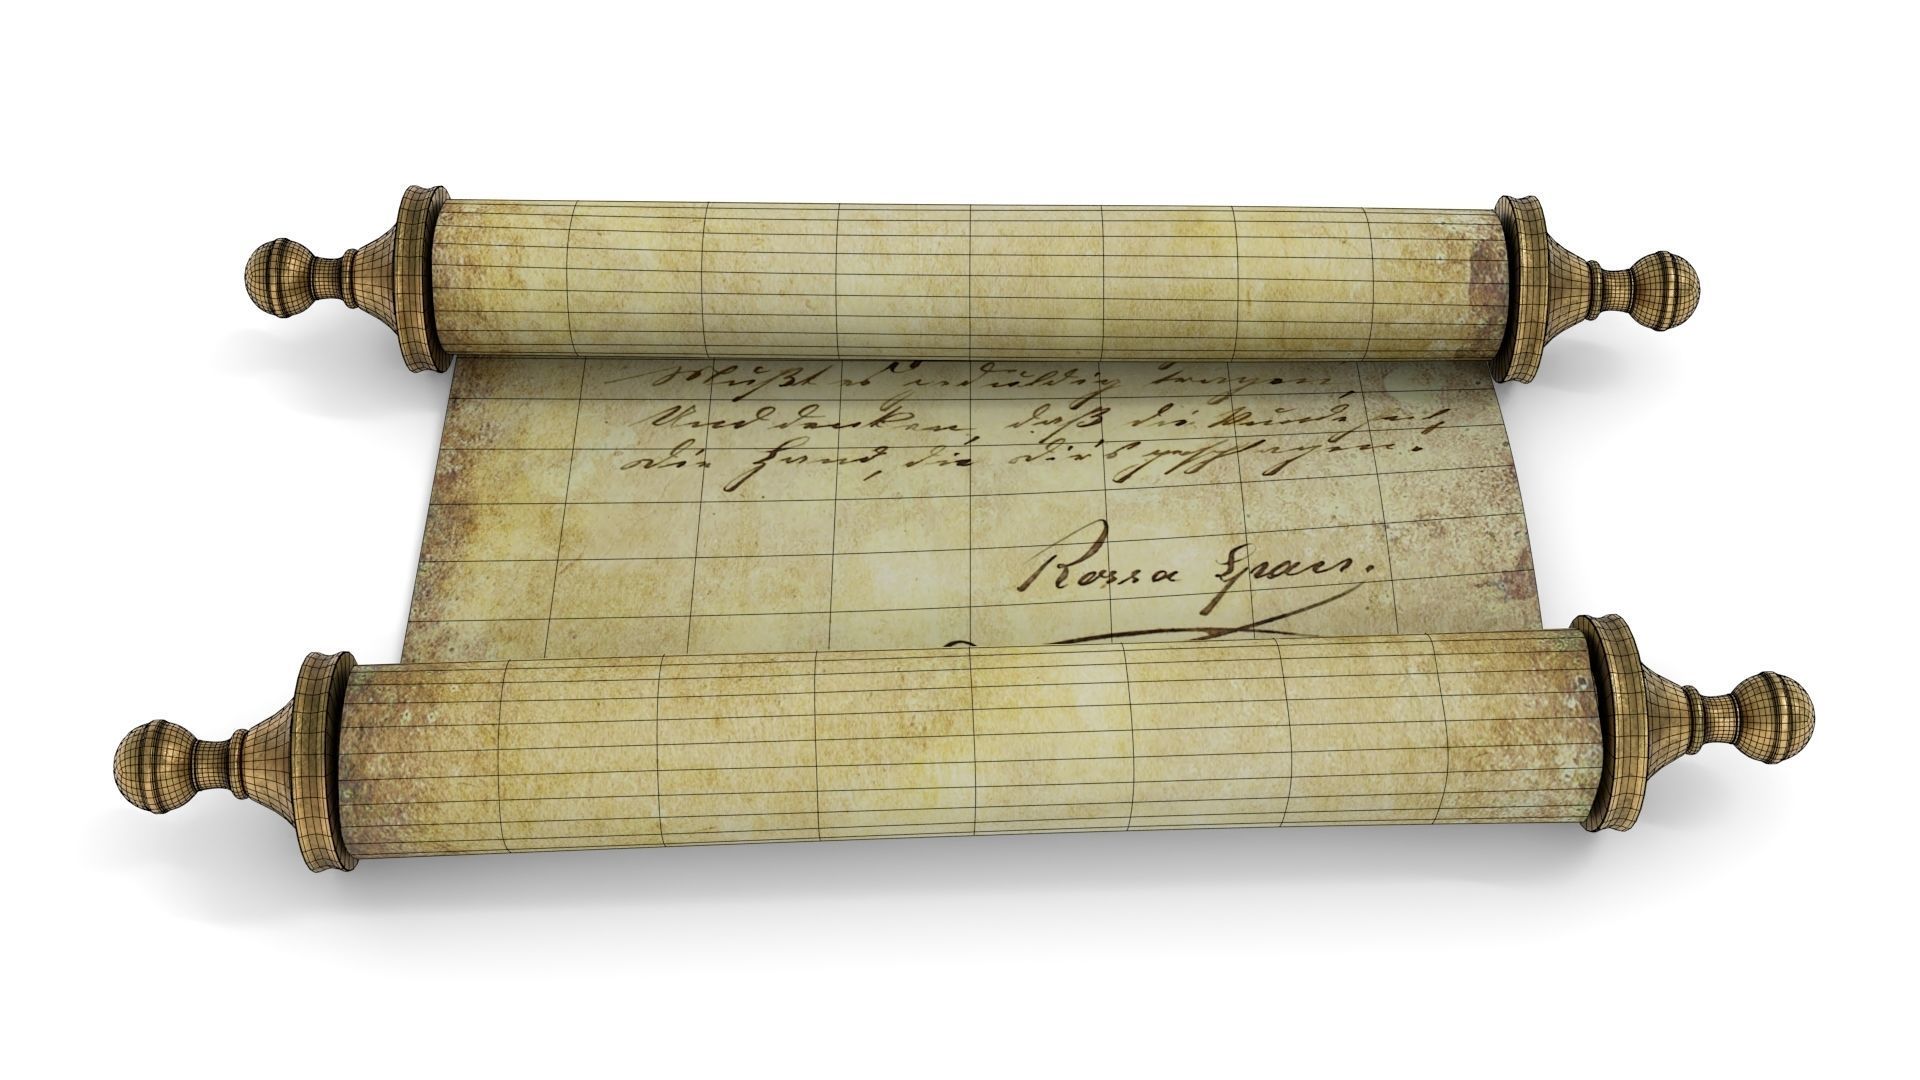 Mußt es geduldig tragen,
Und denken, daß die Wunde heilt,
Die Hand, die dir's geschlagen.
Rossa